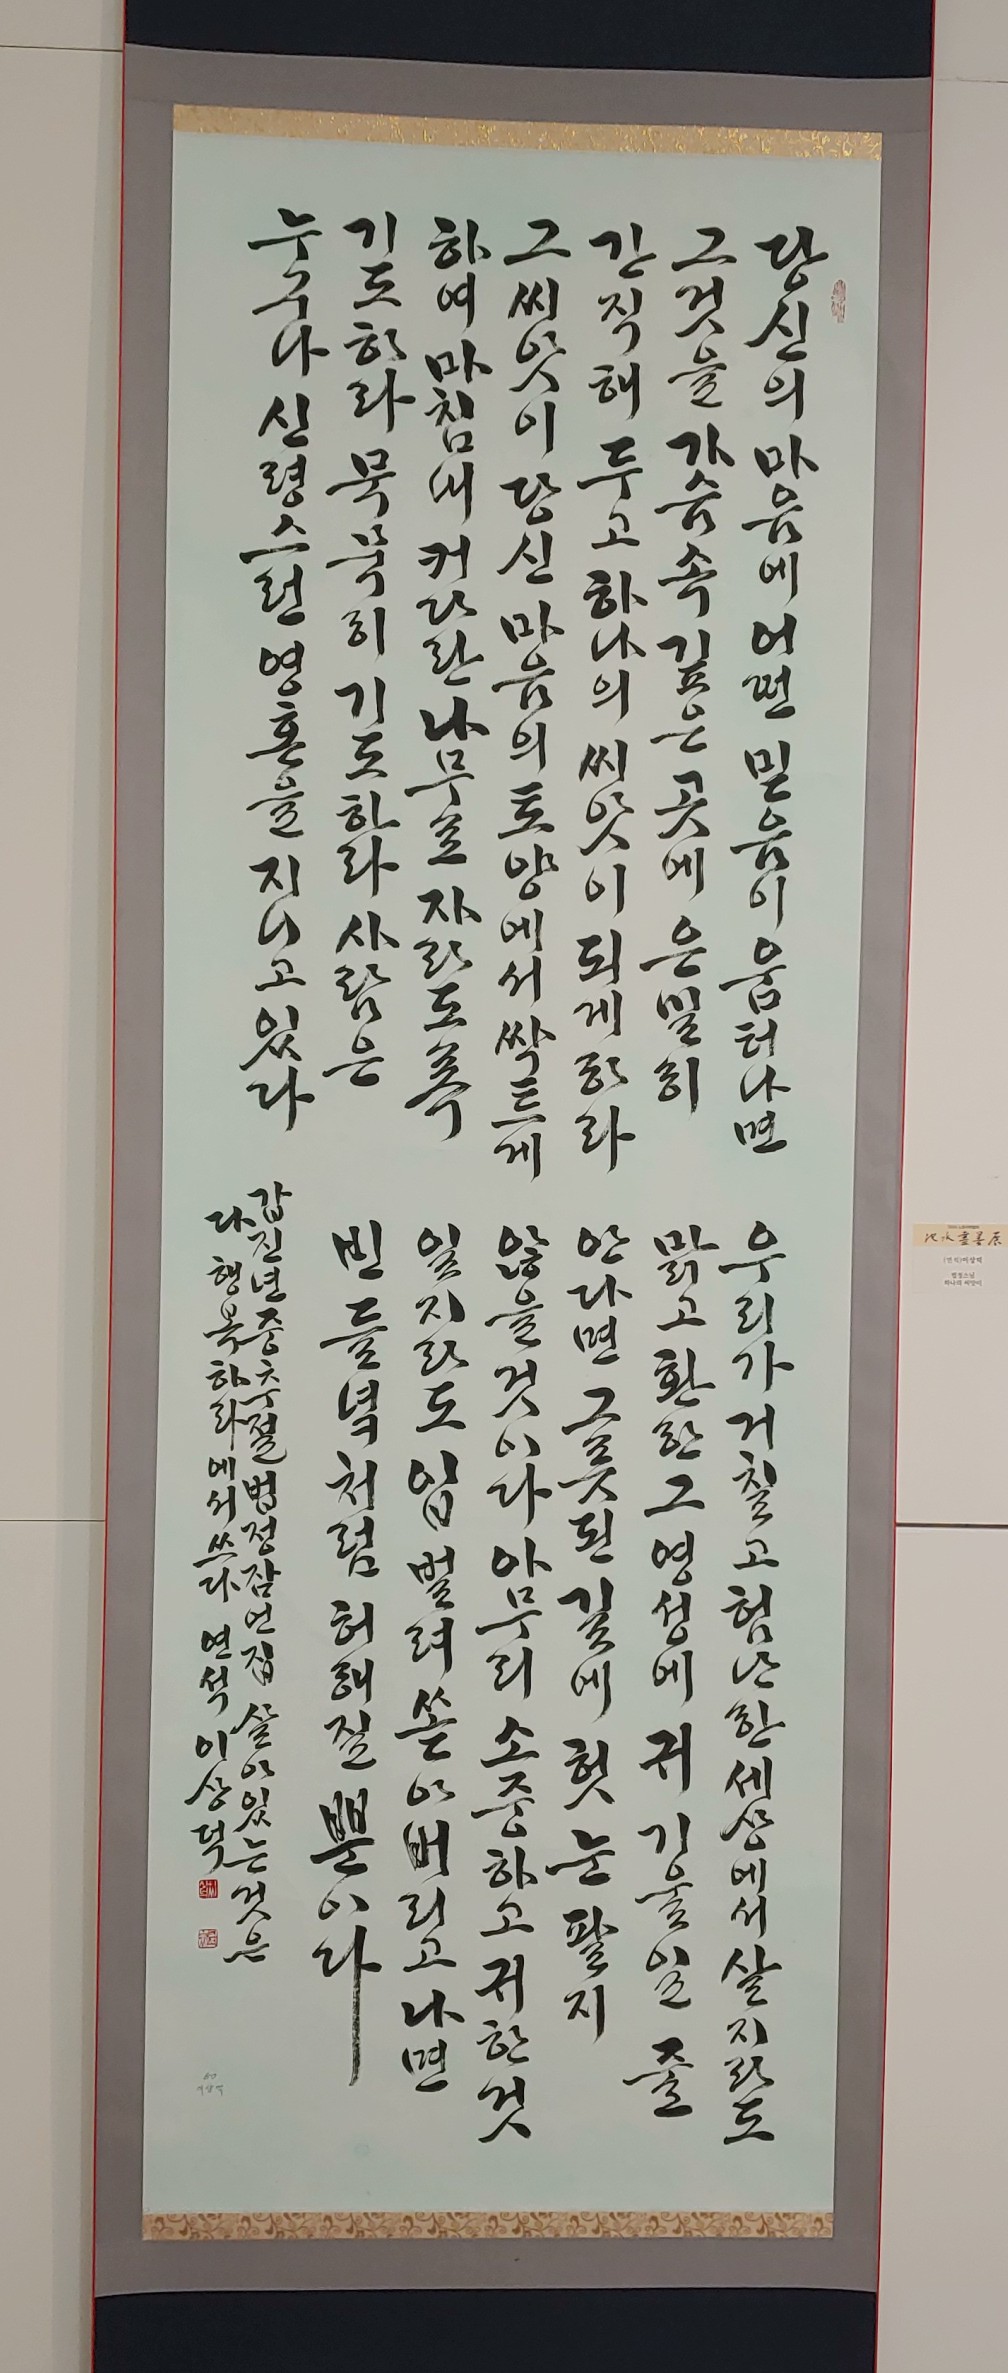 당신의 마음에 어떤 믿음이 움터나면
그것을 가슴속 깊은 곳에 은밀히
간직해 두고 하나의 씨앗이 되게 하라
그 씨앗이 당신 마음의 토양에서 싹트게
하여 마침내 커다란 나무로 자라도록
기도하라 묵묵히 기도하라 사람은
누구나 신령스런 영혼을 지니고 있다
우리가 거칠고 험난한 세상에서 살지라도
맑고 환한 그 영성에 귀 기울일 줄
안다면 그릇된 길에 헛 눈 팔지
않을 것이다 아무리 소중하고 귀한 것
일지라도 입 벌려 쏟아 버리고 나면
빈 들녘처럼 허해질 뿐이다
갑진년 중추절 법정잠언집 살아있는 것은
다 행복하라에서 쓰다 연석 이상덕
(연석)이상덕
법정스님
하나의 씨앗이